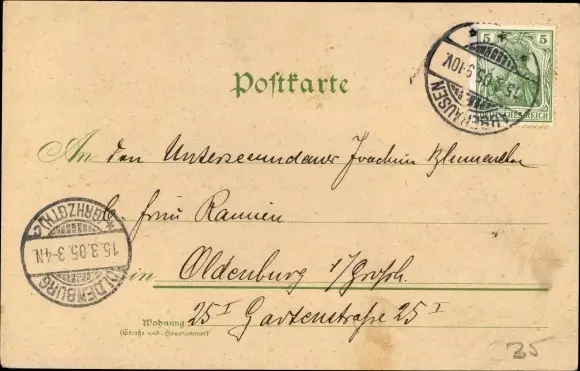 Postkarte
5 5
DEUTSCHES REICH
15.3.05.9-10V.
An den Untersecundaner Joachim
b. Frau Rannien
in Oldenburg i/Großh.
25 I Gartenstraße 25 I
Wohnung
(Straße und Hausnummer)
OLDENBURG
15.3.05.3-4N.
*(GRHZGTH.)*
35